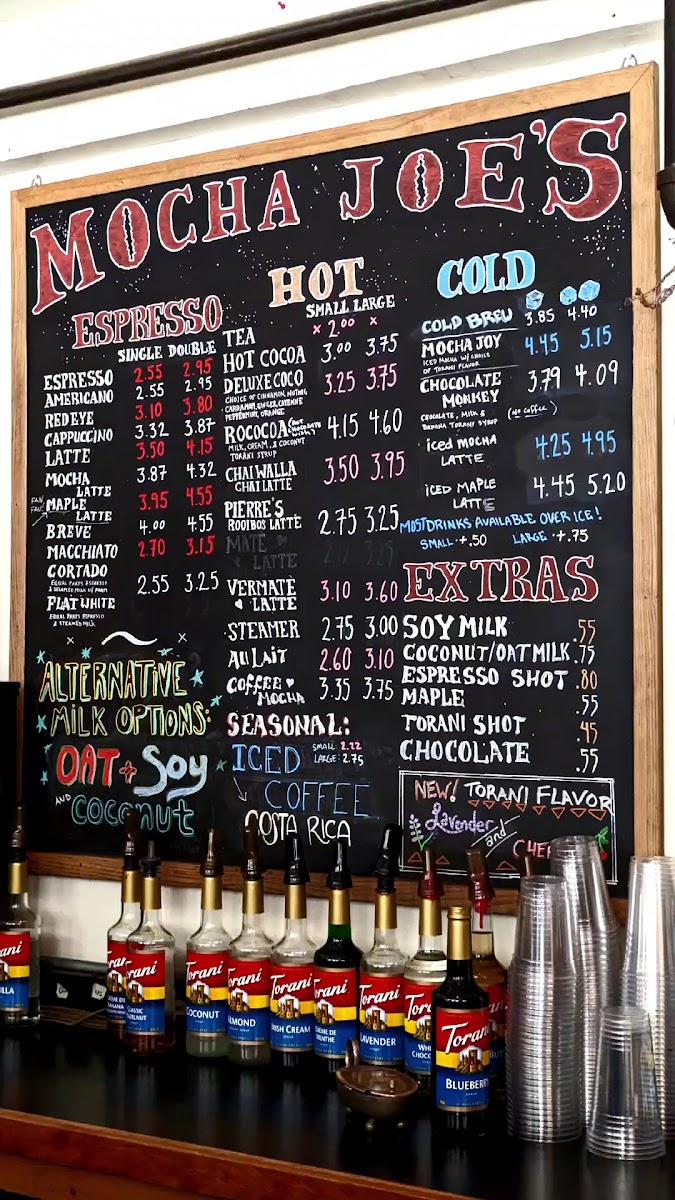 MOCHA JOE'S
ESPRESSO
SINGLE DOUBLE
ESPRESSO 2.55 2.95
AMERICANO 2.55 2.95
RED EYE 3.10 3.80
CAPPUCCINO 3.32 3.87
LATTE 3.50 4.15
MOCHA LATTE 3.87 4.32
FAN FAV
MAPLE LATTE 3.95 4.55
BREVE 4.00 4.55
MACCHIATO 2.70 3.15
CORTADO 2.55 3.25
EQUAL PARTS ESPRESSO
& STEAMED MILK W/ FOAM
FLAT WHITE
EQUAL PARTS ESPRESSO
& STEAMED MILK
ALTERNATIVE
MILK OPTIONS:
OAT + Soy
AND coconut
HOT
SMALL LARGE
TEA x 2.00 x
HOT COCOA 3.00 3.75
DELUXE COCO 3.25 3.75
CHOICE OF CINNAMON, NUTMEG
CARDAMOM, GINGER, CAYENNE
PEPPERMINT, ORANGE
ROCOCOA 4.15 4.60
MILK, CREAM, & COCONUT
TORANI SYRUP
CHAI WALLA
CHAI LATTE 3.50 3.95
PIERRE'S
ROOIBOS LATTE 2.75 3.25
MATE
LATTE
VERMATE
LATTE 3.10 3.60
STEAMER 2.75 3.00
AU LAIT 2.60 3.10
COFFEE
MOCHA 3.35 3.75
SEASONAL:
ICED SMALL 2.22
LARGE: 2.75
COFFEE
COSTA RICA
COLD
COLD BREW 3.85 4.40
MOCHA JOY 4.45 5.15
ICED MOCHA W/ CHOICE
OF TORANI FLAVOR
CHOCOLATE
MONKEY 3.79 4.09
CHOCOLATE, MILK &
BANANA TORANI SYRUP
(No COFFEE)
iced MOCHA
LATTE 4.25 4.95
iCED MAPLE
LATTE 4.45 5.20
MOST DRINKS AVAILABLE OVER ICE!
SMALL +.50 LARGE +.75
EXTRAS
SOY MILK .55
COCONUT/OAT MILK .75
ESPRESSO SHOT .80
MAPLE .55
TORANI SHOT .45
CHOCOLATE .55
NEW! TORANI FLAVOR
Lavender
and
CHE
Torani
Torani
Torani
COCONUT
Torani
Torani
IRISH CREAM
Torani
CREME DE
MENTHE
Torani
LAVENDER
Torani
Torani
BLUEBERRY